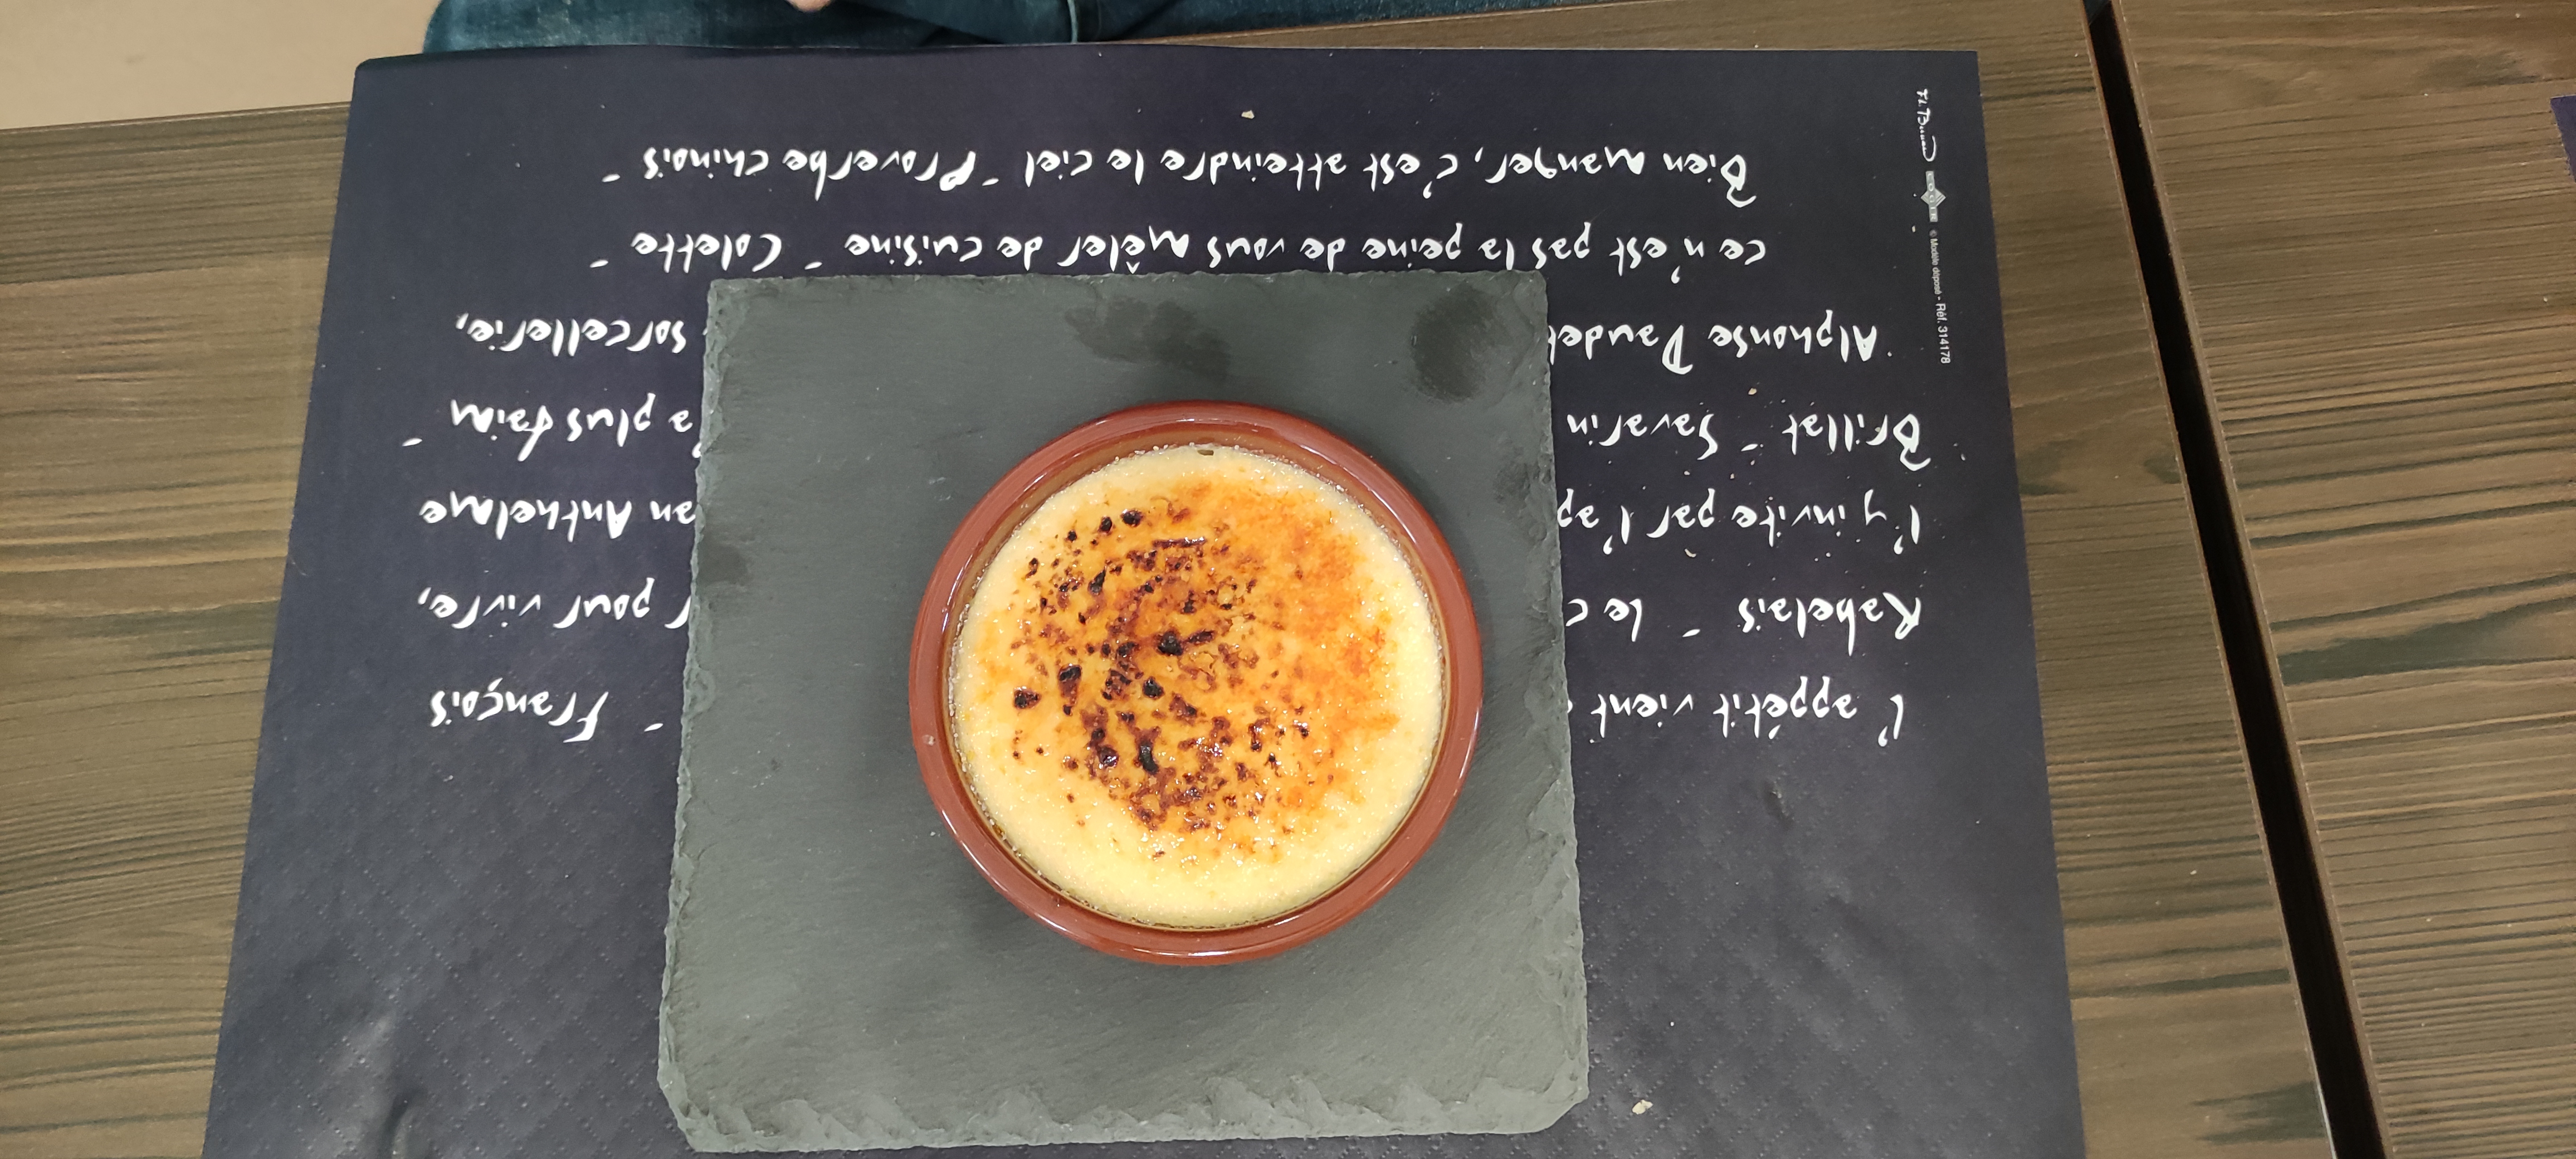 L'appétit vient " François
Rabelais " Le pour vivre,
l'y invite par l' Anthelme
Brillat - Savarin a plus faim "
Alphonse Daudet sorcellerie,
ce n'est pas la peine de vous mêler de cuisine " Colette "
Bien manger, c'est atteindre le ciel " Proverbe chinois "
© Modèle déposé - Réf. 314178